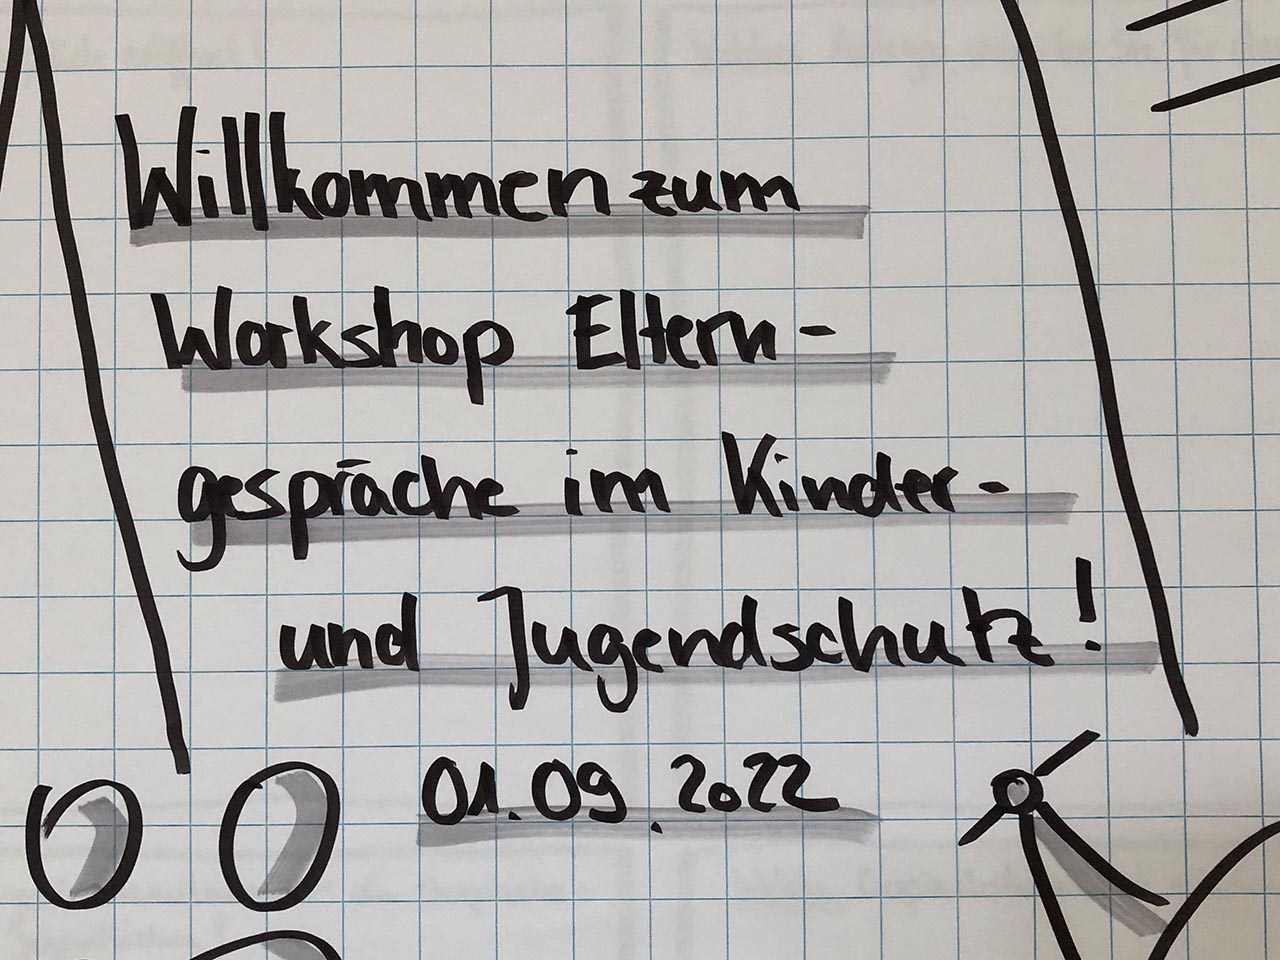 Willkommen zum
Workshop Eltern-
gespräche im Kinder-
und Jugendschutz!
01.09.2022